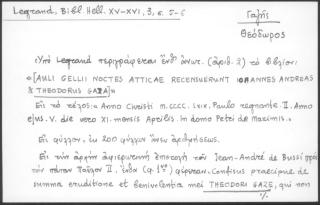 Legrand, Bibl. Hell. XV-XVI, 3, σ. 5-6
Γαζῆς
Θεόδωρος
Ὑπὸ Legrand περιγράφεται ἔνθ' ἀνωτ. (ἀριθ. 2) τὸ βιβλίον:
«[AULI GELLII NOCTES ATTICAE RECENSUERUNT IOANNES ANDREAS
& THEODORUS GAZA]»
Εἰς τὸ τέλος: « Anno Christi M.CCCC. LXIX, Paulo regnante II. Anno
ejus. V. die vero XI. mensis Aprilis. In domo Petri de Maximis.»
Εἰς φύλλον. ἐκ 200 φύλλων ἄνευ ἀριθμήσεως.
Εἰς τὴν ἀρχὴν ἀφιερωτικὴ ἐπιστολὴ τοῦ Jean-André de Bussi πρὸς
τὸν πάπαν Παῦλον II, φέρεται. «Confisus praecipue de
summa eruditione et benivolentia mei THEODORI GAZE, qui non
·/.